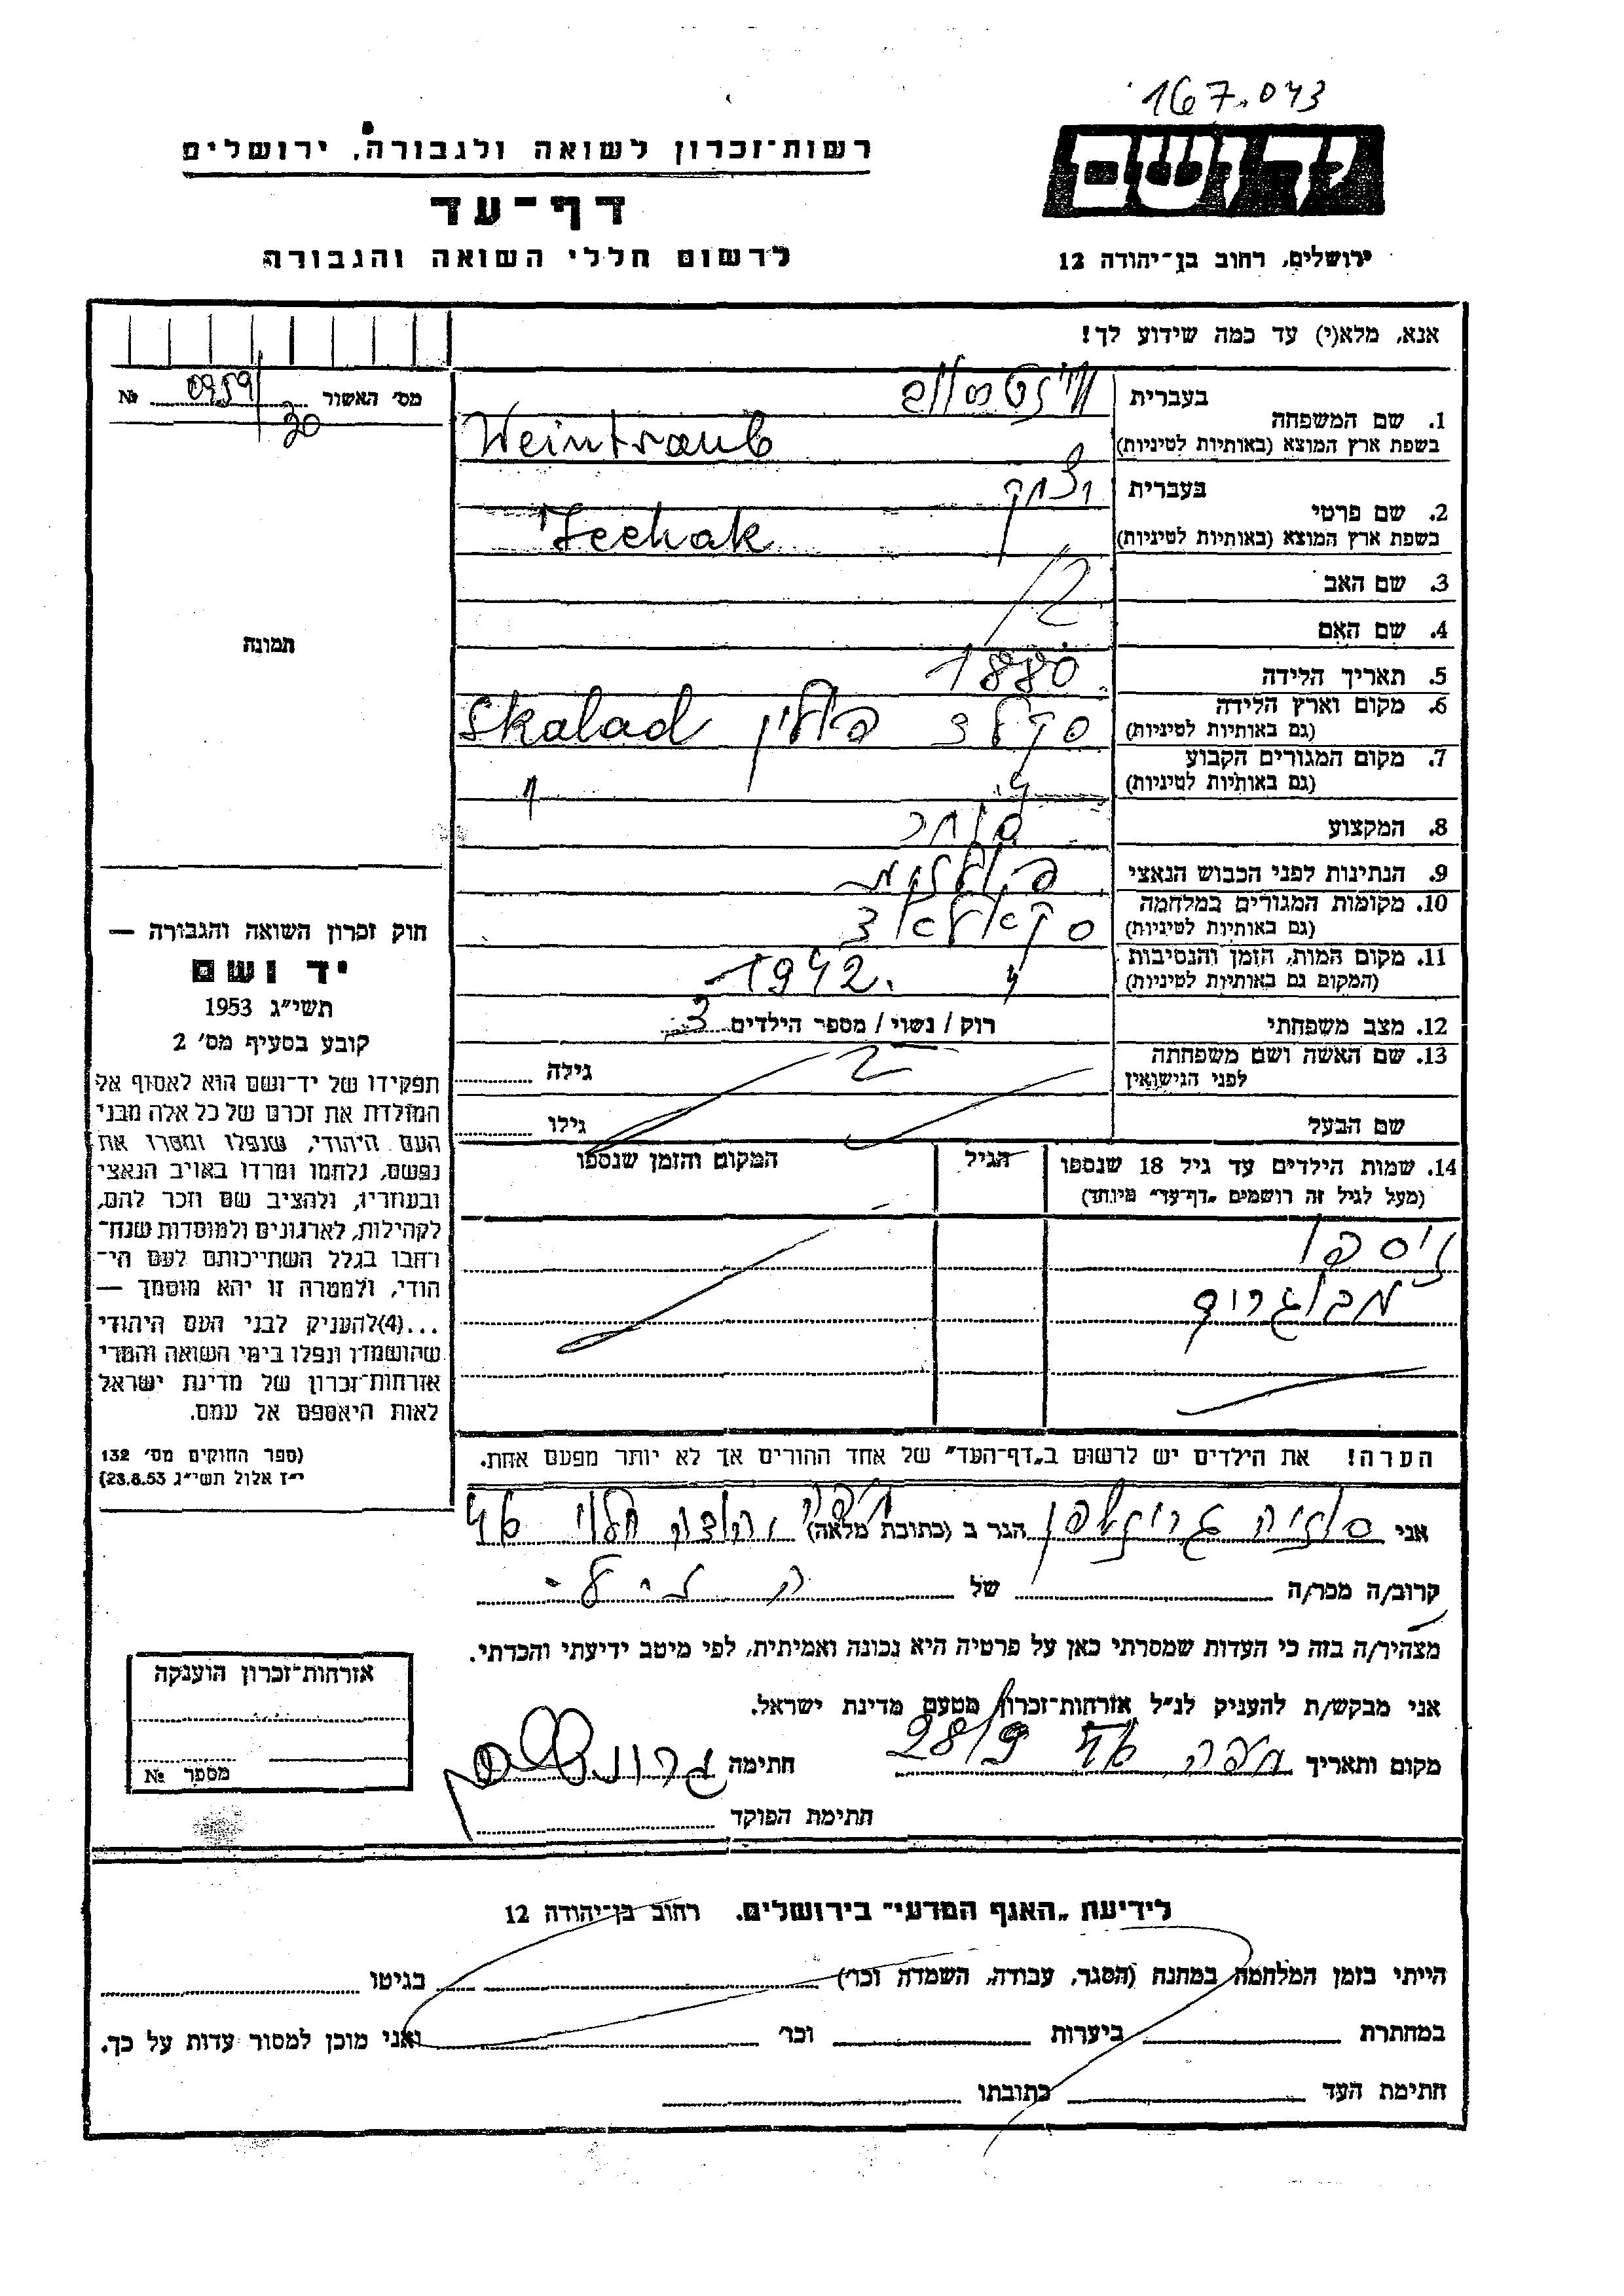 167.043
יד ושם
רשות־זכרון לשואה ולגבורה, ירושלים
דף־עד
לרשום חללי השואה והגבורה
ירושלים, רחוב בן־יהודה 12
אנא, מלא(י) עד כמה שידוע לך!
מס׳ האשור 0959/30 №
בעברית
1. שם המשפחה
בשפת ארץ המוצא (באותיות לטיניות) Weintraub
בעברית יצחק
2. שם פרטי
בשפת ארץ המוצא (באותיות לטיניות)
3. שם האב
4. שם האם
5. תאריך הלידה 1880
6. מקום וארץ הלידה פולין Skalad
(גם באותיות לטיניות)
7. מקום המגורים הקבוע
(גם באותיות לטיניות)
8. המקצוע סוחר
9. הנתינות לפני הכבוש הנאצי
10. מקומות המגורים במלחמה
(גם באותיות לטיניות)
11. מקום המות, הזמן והנסיבות 1942.
(המקום גם באותיות לטיניות)
12. מצב משפחתי רוק / נשוי / מספר הילדים 3
13. שם האשה ושם משפחתה
לפני הנישואין גילה
שם הבעל גילו
14. שמות הילדים עד גיל 18 שנספו הגיל המקום והזמן שנספו
(מעל לגיל זה רושמים „דף־עד״ מיוחד)
ניספו
הערה! את הילדים יש לרשום ב„דף־העד״ של אחד ההורים אך לא יותר מפעם אחת.
תמונה
חוק זכרון השואה והגבורה —
יד ושם
תשי״ג 1953
קובע בסעיף מס׳ 2
תפקידו של יד־ושם הוא לאסוף אל
המולדת את זכרם של כל אלה מבני
העם היהודי, שנפלו ומסרו את
נפשם, נלחמו ומרדו באויב הנאצי
ובעוזריו, ולהציב שם וזכר להם,
לקהילות, לארגונים ולמוסדות שנח־
רחבו בגלל השתייכותם לעם הי־
הודי, ולמטרה זו יהא מוסמך —
...(4)להעניק לבני העם היהודי
שהושמדו ונפלו בימי השואה והמרי
אזרחות־זכרון של מדינת ישראל
לאות היאספם אל עמם.
(ספר החוקים מס׳ 132
י״ז אלול תשי״ג 28.8.53)
אני הגר ב (כתובת מלאה) חיפה
קרוב/ה מכר/ה של
מצהיר/ה בזה כי העדות שמסרתי כאן על פרטיה היא נכונה ואמיתית, לפי מיטב ידיעתי והכרתי.
אני מבקש/ת להעניק לנ״ל אזרחות־זכרון מטעם מדינת ישראל.
מקום ותאריך חיפה 28/9 חתימה
חתימת הפוקד
אזרחות־זכרון הוענקה
מספר №
לידיעת „האגף המדעי״ בירושלים, רחוב בן־יהודה 12
הייתי בזמן המלחמה במחנה (הסגר, עבודה, השמדה וכו׳) בגיטו
במחתרת ביערות וכו׳ ואני מוכן למסור עדות על כך.
חתימת העד כתובתו